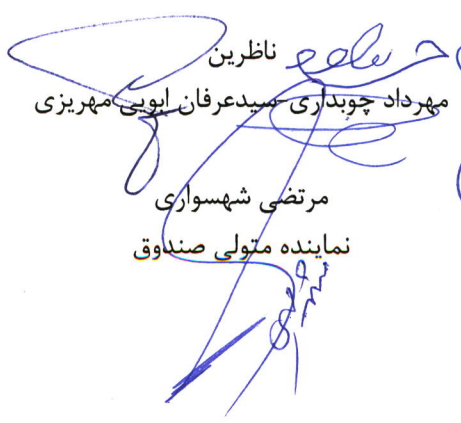 ناظرین
مهرداد چوبداری-سیدعرفان ابویی مهریزی
مرتضی شهسواری
نماینده متولی صندوق